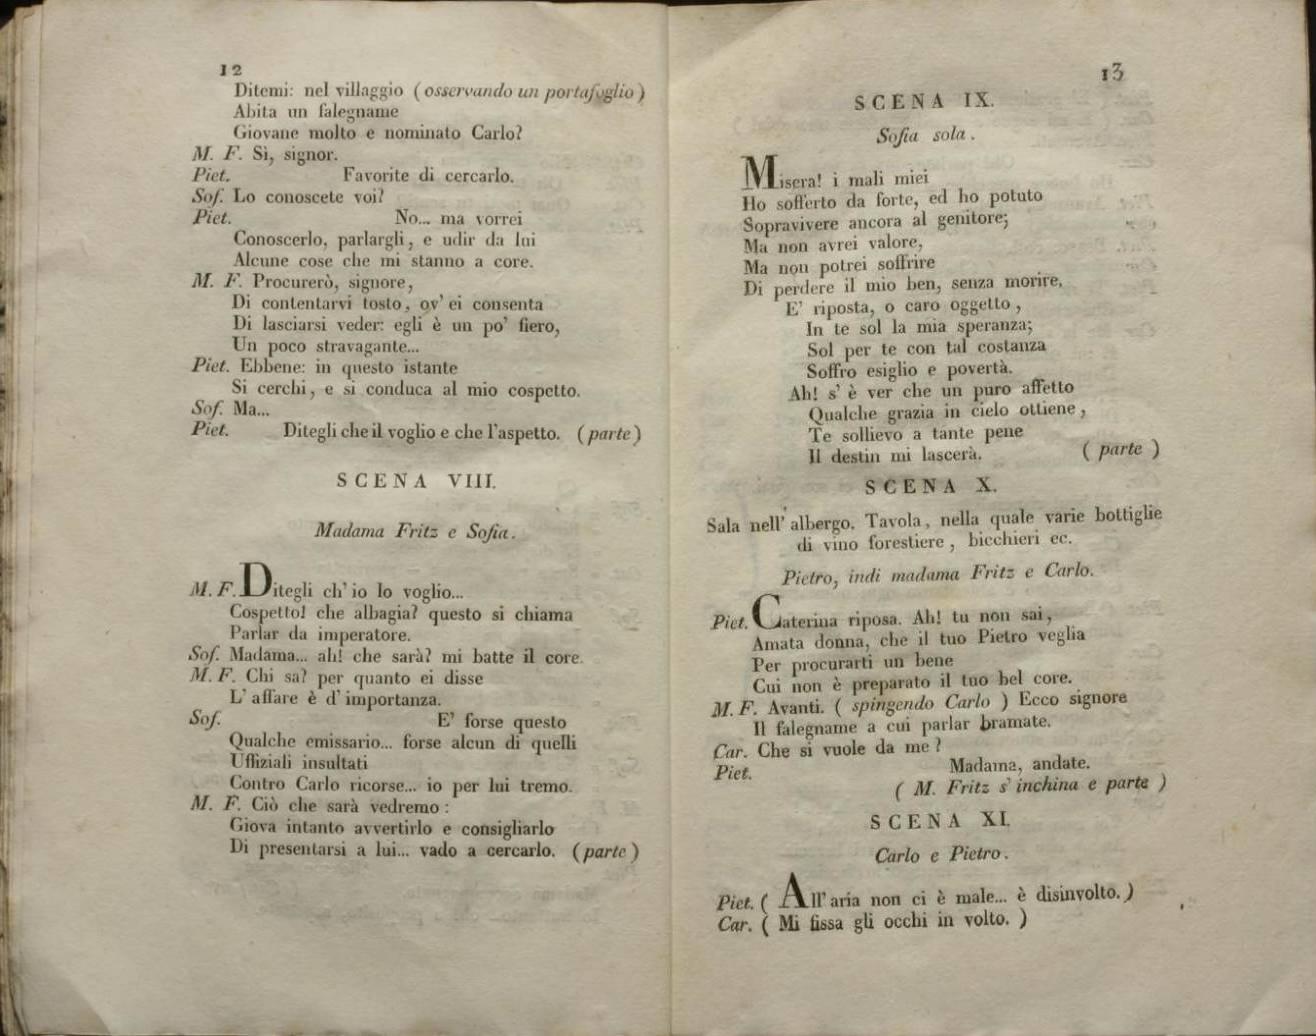 12
Ditemi: nel villaggio ( osservando un portafoglio )
Abita un falegname
Giovane molto e nominato Carlo?
M. F. Sì, signor.
Piet. Favorite di cercarlo.
Sof. Lo conoscete voi?
Piet. No... ma vorrei
Conoscerlo, parlargli, e udir da lui
Alcune cose che mi stanno a core.
M. F. Procurerò, signore,
Di contentarvi tosto, ov' ei consenta
Di lasciarsi veder: egli è un po' fiero,
Un poco stravagante...
Piet. Ebbene: in questo istante
Si cerchi, e si conduca al mio cospetto.
Sof. Ma...
Piet. Ditegli che il voglio e che l'aspetto. ( parte )
SCENA VIII.
Madama Fritz e Sofia.
M. F. Ditegli ch' io lo voglio...
Cospetto! che albagia? questo si chiama
Parlar da imperatore.
Sof. Madama... ah! che sarà? mi batte il core.
M. F. Chi sa? per quanto ei disse
L' affare è d' importanza.
Sof. E' forse questo
Qualche emissario... forse alcun di quelli
Uffiziali insultati
Contro Carlo ricorse... io per lui tremo.
M. F. Ciò che sarà vedremo :
Giova intanto avvertirlo e consigliarlo
Di presentarsi a lui... vado a cercarlo. ( parte )
13
SCENA IX.
Sofia sola .
Misera! i mali miei
Ho sofferto da forte, ed ho potuto
Sopravivere ancora al genitore;
Ma non avrei valore,
Ma non potrei soffrire
Di perdere il mio ben, senza morire.
E' riposta, o caro oggetto ,
In te sol la mia speranza;
Sol per te con tal costanza
Soffro esiglio e povertà.
Ah! s' è ver che un puro affetto
Qualche grazia in cielo ottiene ,
Te sollievo a tante pene
Il destin mi lascerà. ( parte )
SCENA X.
Sala nell' albergo. Tavola, nella quale varie bottiglie
di vino forestiere , bicchieri ec.
Pietro, indi madama Fritz e Carlo.
Piet. Caterina riposa. Ah! tu non sai,
Amata donna, che il tuo Pietro veglia
Per procurarti un bene
Cui non è preparato il tuo bel core.
M. F. Avanti. ( spingendo Carlo ) Ecco signore
Il falegname a cui parlar bramate.
Car. Che si vuole da me ?
Piet. Madama, andate.
( M. Fritz s' inchina e parte )
SCENA XI.
Carlo e Pietro .
Piet. ( All' aria non ci è male... è disinvolto. )
Car. ( Mi fissa gli occhi in volto. )